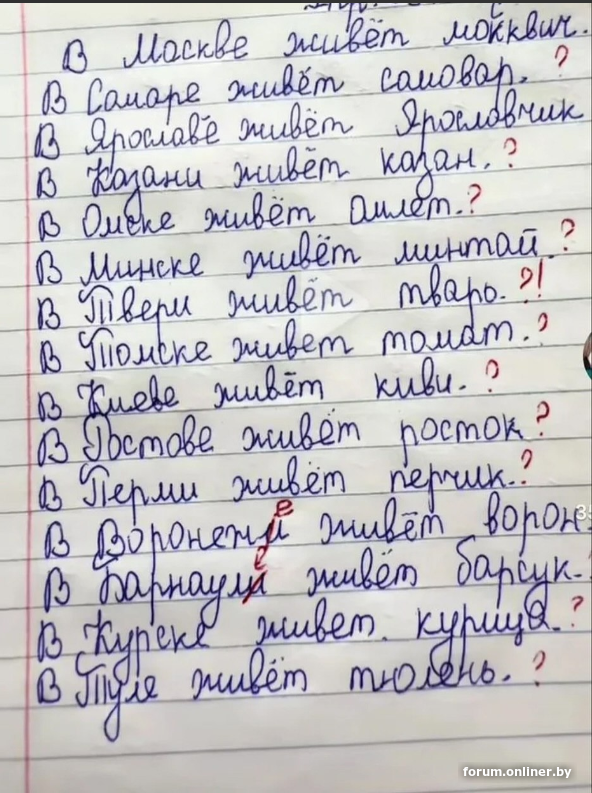 В Москве живёт мокквич.
В Самаре живёт самовар. ?
В Ярославе живёт Ярославчик
В Казани живёт казан. ?
В Омске живёт амлет. ?
В Минске живёт минтай ?
В Твери живёт тварь. ?!
В Томске живет томат. ?
В Киеве живёт киви. ?
В Ростове живёт росток ?
В Перми живёт перчик. ?
В Воронежи е живёт ворон.
В Барнаули е живёт барсук.
В Курске живет. курица. ?
В Туле живёт тюлень. ?
forum.onliner.by